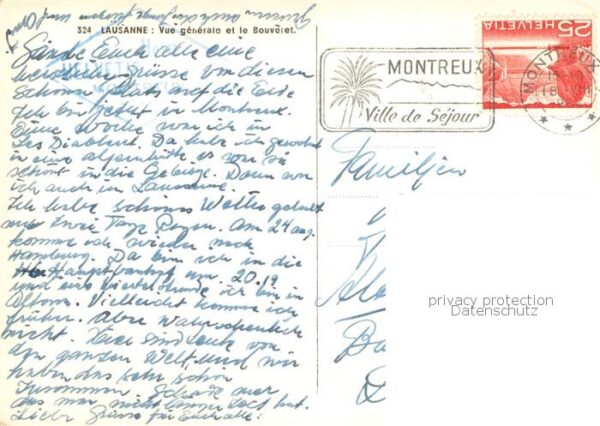 324 LAUSANNE : Vue générale et le Bouveret.
Sände Euch alle eine
Grüsse von diesen
schönen Platz auf die Erde
Ich bin jetzt in Montreux.
Eine Woche war ich in
Les Diableret. Da habe ich gewohnt
in eine alpenhütte es war so
schön in die Gebirge. Dann war
ich auch in Lausanne.
Ich habe schönes Wetter gehabt
nur zwei Tage Regen. Am 24 aug.
komme ich wieder nach
Hamburg. Da bin ich in die
Hauptbanhof um 20.19
und eine viertelstunde ich bin in
Altona. Vielleicht komme ich
früher. Aber Wahrscheinlich
nicht. Hier sind Leute von
den ganzen Welt, und wir
haben das sehr schön
zusammen. Schade nur
das man nicht
Liebe Grüsse für Euch alle.
MONTREUX
Ville de Séjour
MONTREUX
HELVETIA
25
Familjen
privacy protection
Datenschutz